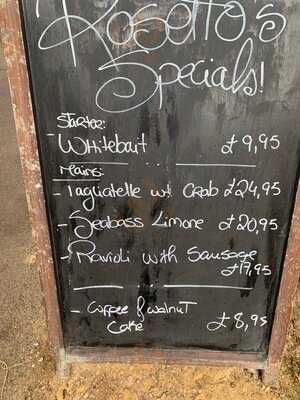 Rosetto's
Specials!
Starter:
- Whitebait £9,95
Mains:
- Tagliatelle wt Crab £24,95
- Seabass Limone £20,95
- Ravioli with Sausage
£17,95
- Coffee & walnut
Cake £8,95